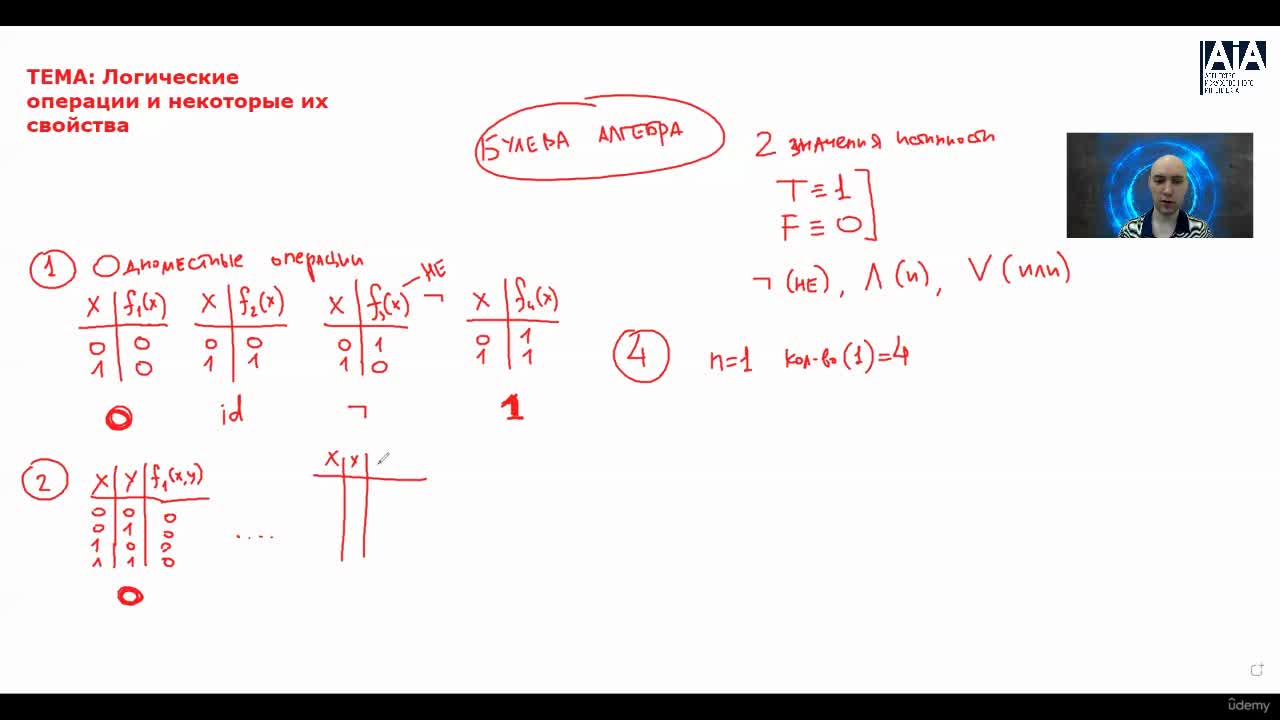 ТЕМА: Логические
операции и некоторые их
свойства
AiA
АГЕНТСТВО
ИСКУССТВЕННОГО
БУЛЕВА АЛГЕБРА
2 значения истинности
T ≡ 1
F ≡ 0
¬ (НЕ), Λ (И), V (или)
1 Одноместные операции
НЕ
¬
X f₁(x) X f₂(x) X f₃(x) X f₄(x)
0 0 0 0 0 1 0 1
1 0 1 1 1 0 1 1
0 id ¬ 1
4 n=1 кол-во (1)=4
2 X Y f₁(x,y) X Y
0 0 0
0 1 0
1 0 0
1 1 0
....
0
ûdemy